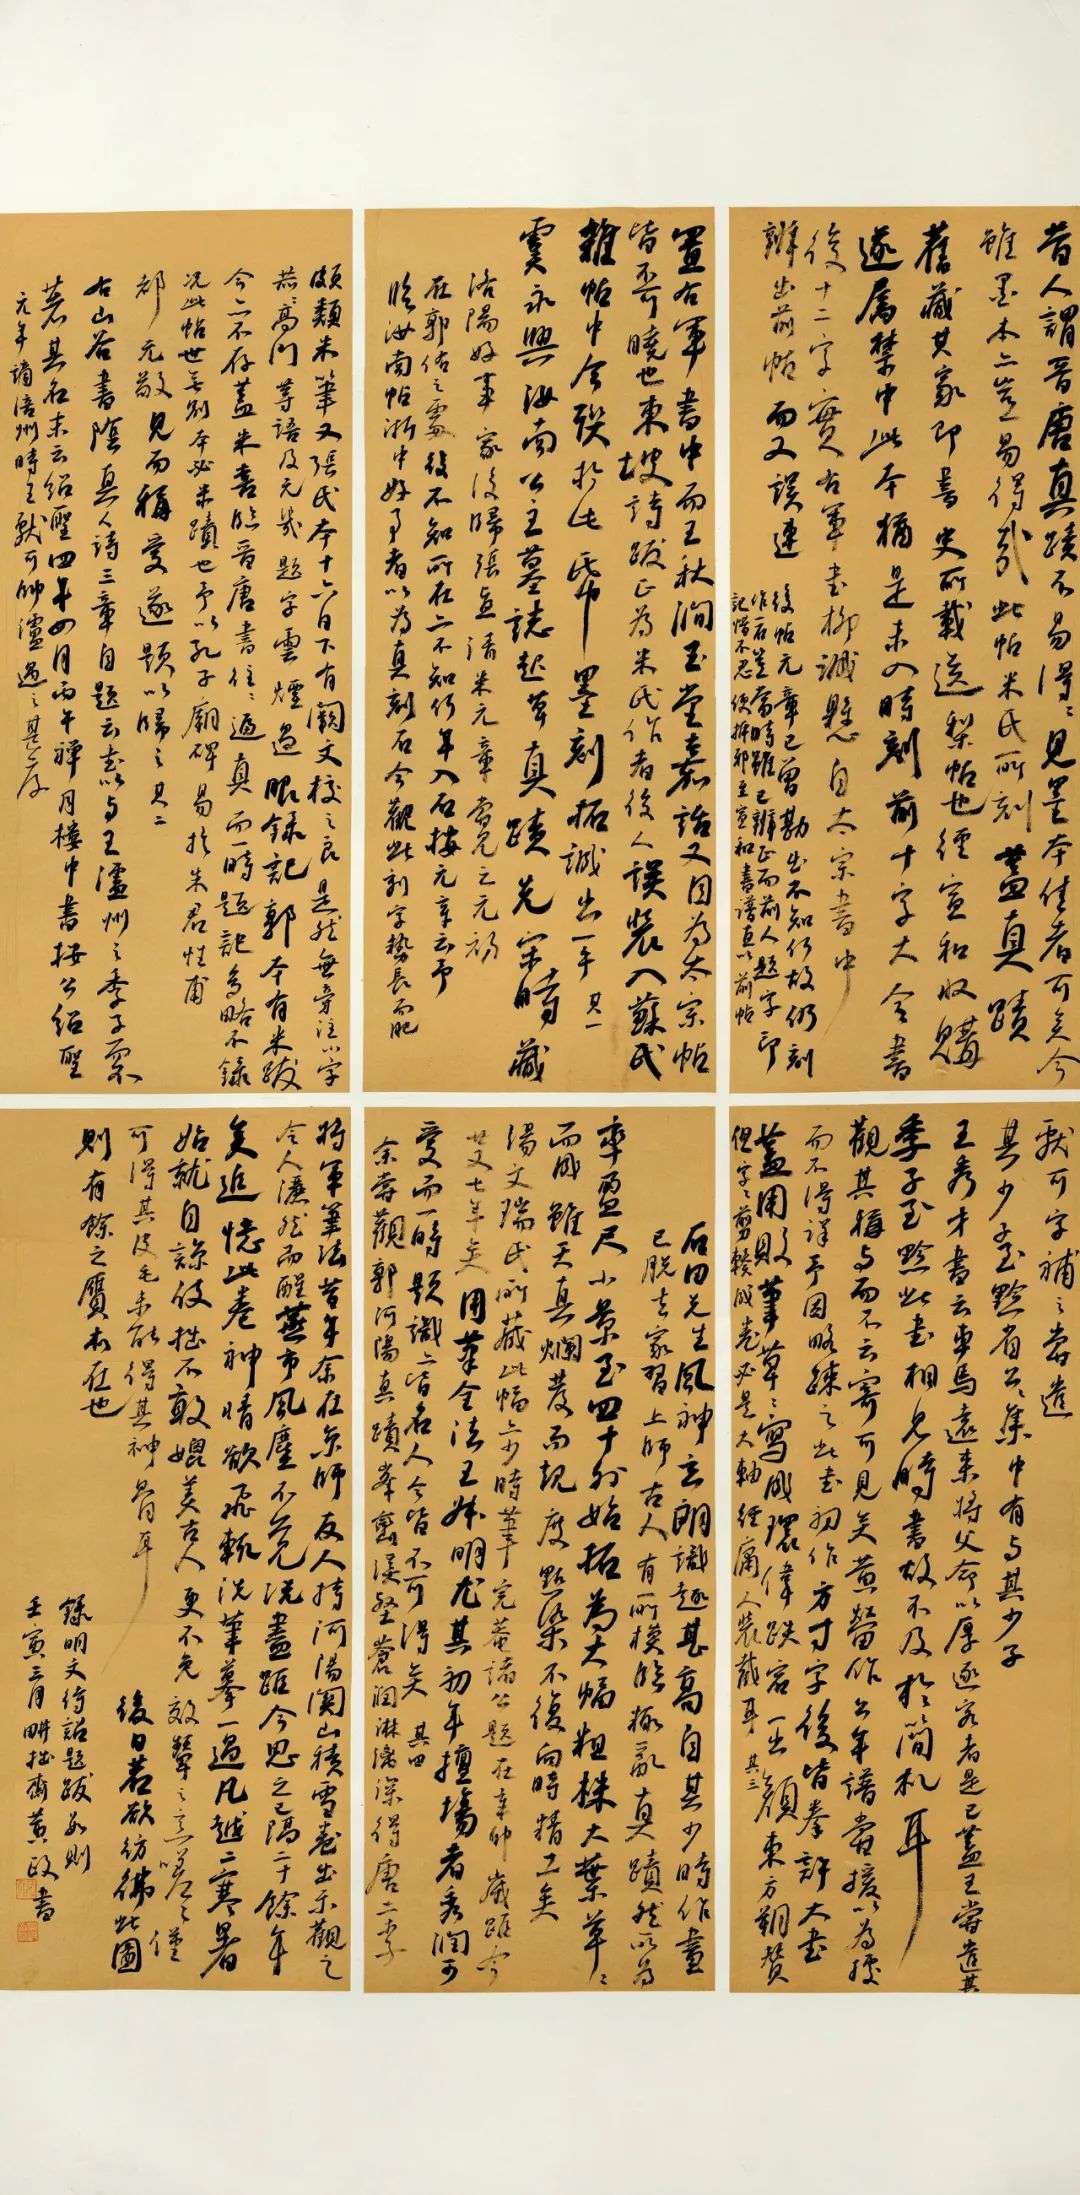 昔人謂晉唐真蹟不易得得見墨本佳者可矣今
雖墨本亦豈易得哉此帖米氏所刻蓋真蹟
舊藏其家即書史所載送梨帖也經宣和收購
遂屬禁中此本猶是未入時刻前十字大令書
後十二字實右軍書柳諴懸自太宗書中
辨出前帖而又誤連
後帖元章已曾勘出不知何故仍刻
作一石豈當時雖已辨正而前人題字印
記惜不忍便拆耶至宣和書譜直以前帖
置右軍書中而王秋澗玉堂嘉話又目為太宗帖
皆不可曉也東坡詩跋正為米氏作者後人誤裝入蘇氏
雜帖中今聯於此紙墨刻拓誠出一手 其一
虞永興汝南公主墓誌起草真蹟元宋時藏
洛陽好事家後歸張直清米元章嘗見之元祐
在郭佑之處後不知所在亦不知何年入石按元章云予
臨汝南帖浙中好事者以為真刻石今觀此刻字勢長而肥
頗類米筆又張氏本十六日下有闕文校之良是然無旁注小字
恭恭高門等語及元幾題字雲煙過眼錄記郭本有米跋
今亦不存蓋米書臨晉唐書往往逼真而一時題記多略不錄
況此帖世無別本必米蹟也予以孔子廟碑易於朱君性甫
都元敬見而稱愛遂題以歸之 其二
右山谷書陰真人詩三章自題云書以與王瀘州之季子而不
著其名末云紹聖四年四月丙午禪月樓中書按公紹聖
元年謫涪州時王獻可帥瀘遇之甚厚
獻可字補之嘗遣
其少子至黔省公公集中有與其少子
王秀才書云車馬遠來將父命以厚逐客者是已蓋王嘗遣其
季子至黔此書相見時書故不及於簡札耳
觀其稱與而不云寄可見矣黃䎖作公年譜嘗援以為據
而不得詳予因略疎之此書初作方寸字後皆拳許大書
蓋用敗筆草草寫成瓌偉跌宕一出顏東方朔贊
但字字剪𦂍成卷必是大軸經庸人裝裁耳 其三
石田先生風神玄朗識趣甚高自其少時作畫
已脫去家習上師古人有所模臨輒亂真蹟然所為
率盈尺小景至四十外始拓為大幅粗株大葉草草
而成雖天真爛發而規度點染不復向時精工矣
湯文瑞氏所藏此幅亦少時筆完菴諸公題在辛卯歲距今
廿又七年矣用筆全法王叔明尤其初年擅場者秀潤可
愛而一時題識亦皆名人今皆不可得矣 其四
余嘗觀郭河陽真蹟峯巒渓壑蒼潤淋漓深得唐二李
將軍筆法昔年余在京師友人持河陽関山積雪卷出示觀之
令人灑然而醒蕪市風塵不覺洗盡距今思之已隔二十餘年
矣追憶此卷神情欲飛輒洗筆摹一過凡越二寒暑
始就自諒伎拙不敢媲美古人更不免效顰之意嗟嗟僅
可得其皮毛未能得其神骨耳
後日若欲彷彿此圖
則有餘之贋本在也
錄明文待詔題跋如則
壬寅三月畊拙齋黃政書